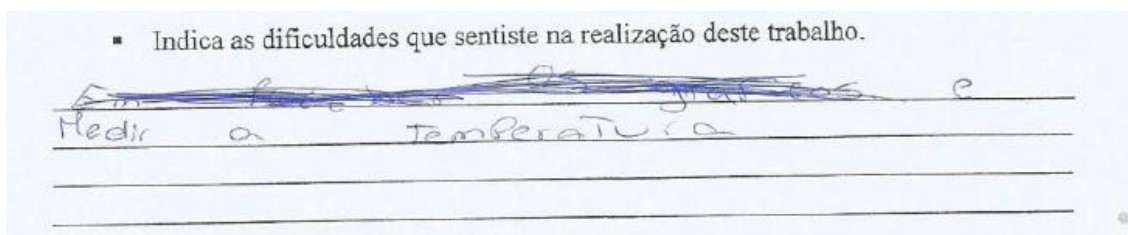 ▪ Indica as dificuldades que sentiste na realização deste trabalho.
Em os graficos e
Medir a Temperatura